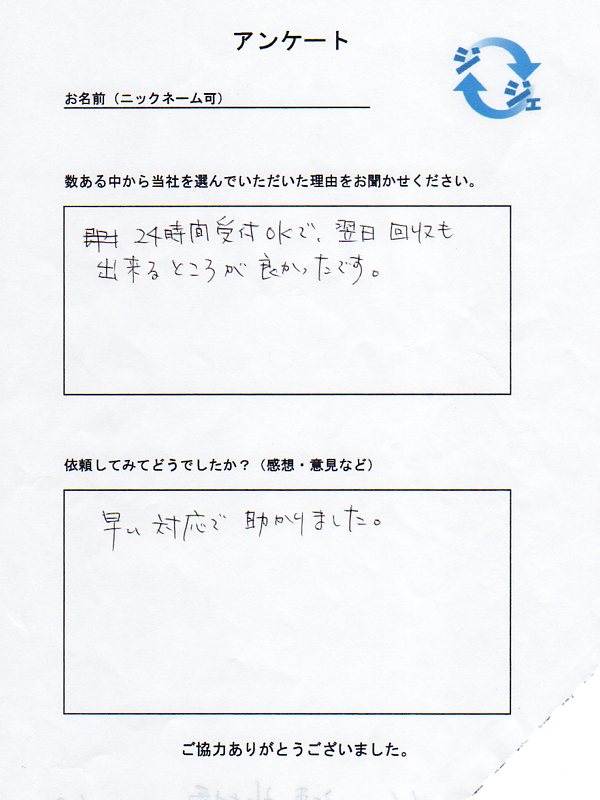 アンケート
ジジェ
お名前（ニックネーム可）
数ある中から当社を選んでいただいた理由をお聞かせください。
24時間受付OKで、翌日回収も
出来るところが良かったです。
依頼してみてどうでしたか？（感想・意見など）
早い対応で助かりました。
ご協力ありがとうございました。